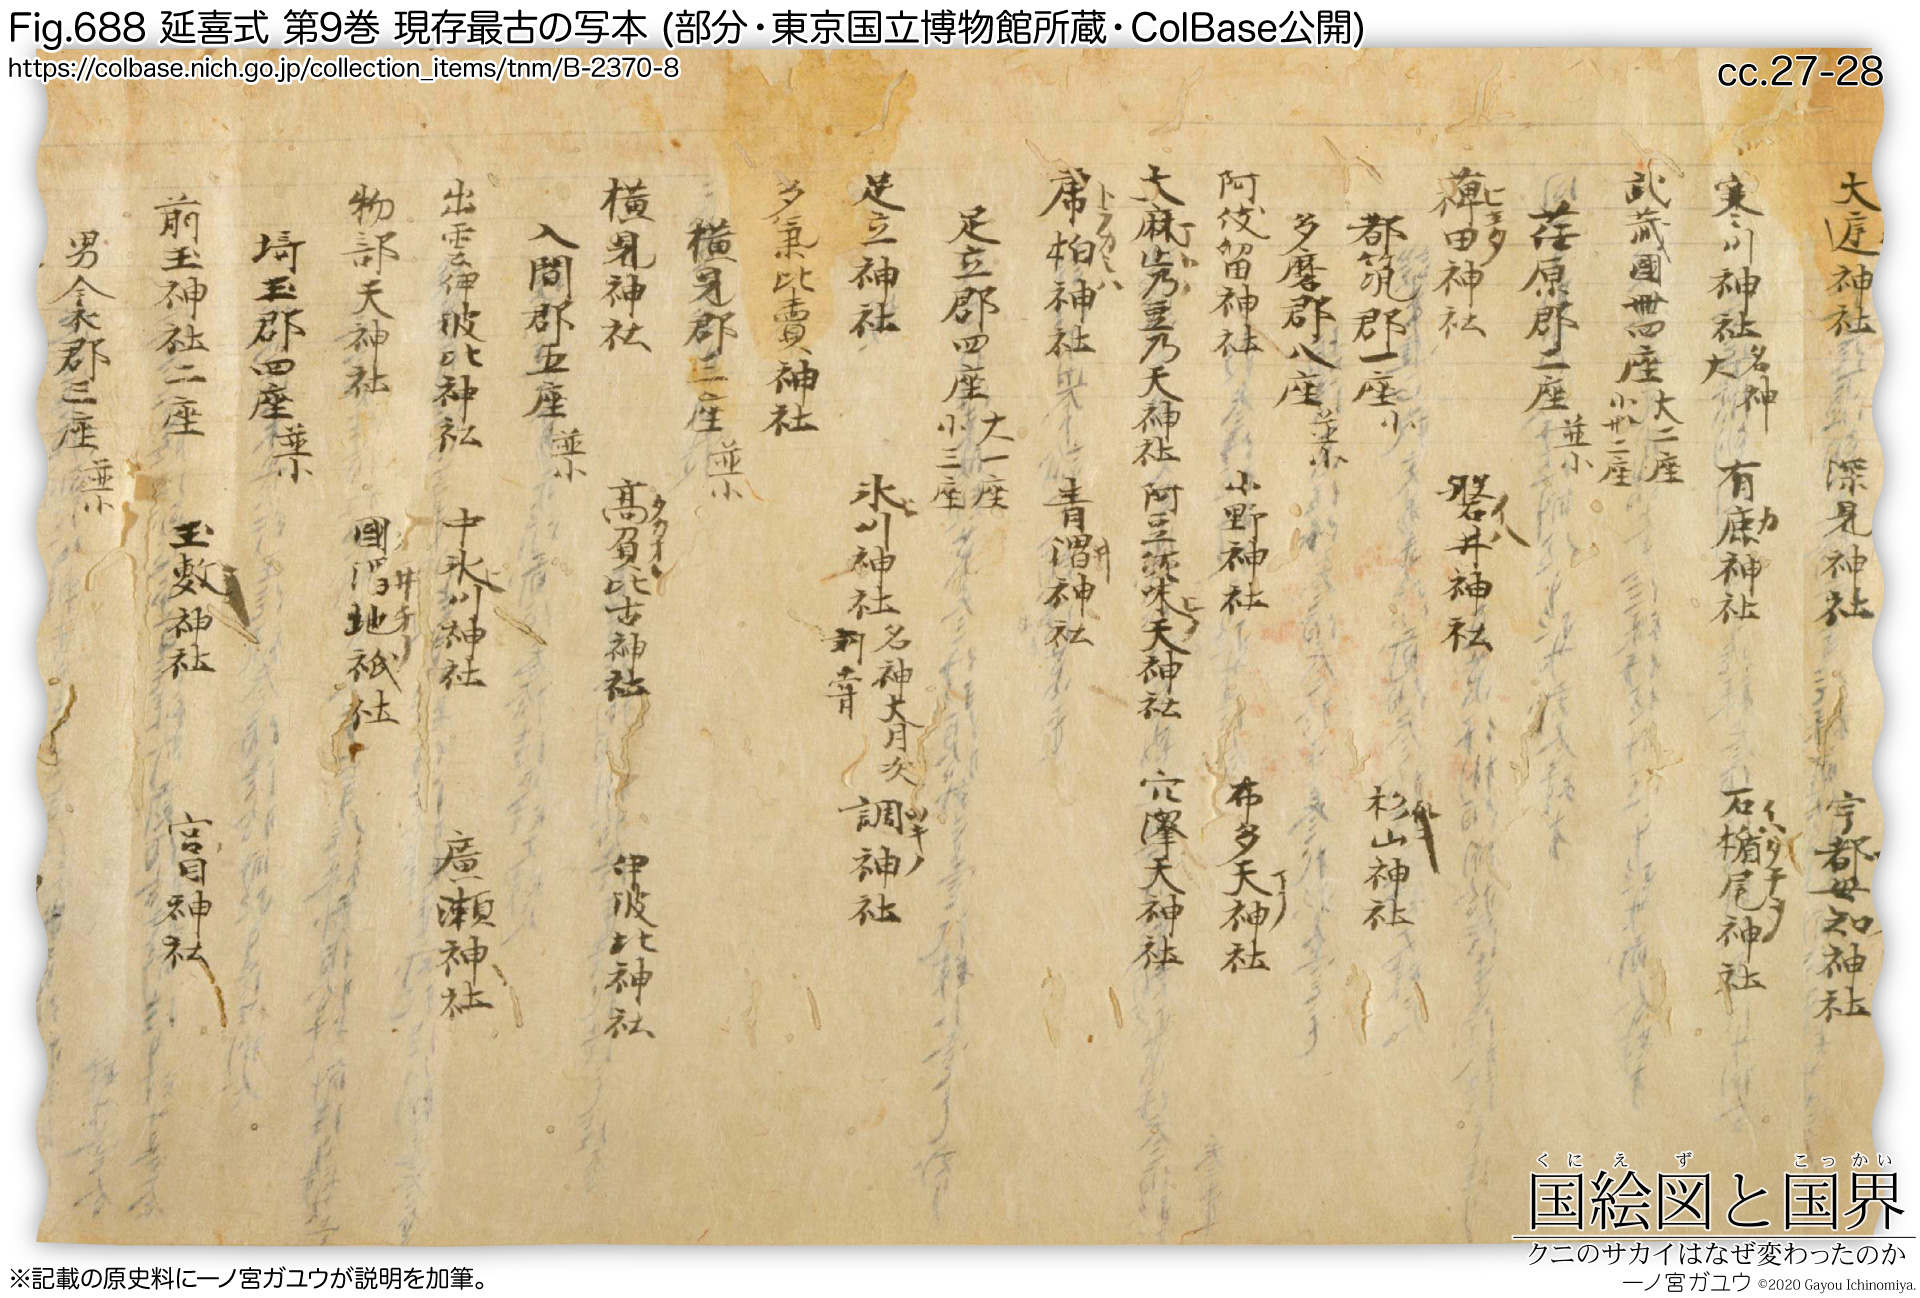 Fig.688 延喜式 第9巻 現存最古の写本 (部分・東京国立博物館所蔵・ColBase公開)
https://colbase.nich.go.jp/collection_items/tnm/B-2370-8
cc.27-28
大庭神社 深見神社 宇都母知神社
寒川神社 名神大 有鹿神社 石楯尾神社
カ イハタテヲ
武蔵國卌四座 大二座 小卌二座
荏原郡二座 並小
薭田神社 磐井神社
ヒエタ イハ
都筑郡一座 小
杉山神社
多磨郡八座 並小
阿伎留神社 小野神社 布多天神社
大麻止乃豆乃天神社 阿豆佐味天神社 穴澤天神社
虎柏神社 青渭神社
トラカシハ 井
足立郡四座 大一座 小三座
足立神社 氷川神社 名神大月次新甞 調神社
ヒ ツキノ
多氣比賣神社
横見郡三座 並小
横見神社 高負比古神社 伊波比神社
タカオ
入間郡五座 並小
出雲伊波比神社 中氷川神社 廣瀬神社
ヒ
物部天神社 國渭地祇社
井チ
埼玉郡四座 並小
前玉神社二座 玉敷神社 宮目神社
男衾郡三座 並小
くにえず こっかい
国絵図と国界
クニのサカイはなぜ変わったのか
一ノ宮ガユウ ©2020 Gayou Ichinomiya.
※記載の原史料に一ノ宮ガユウが説明を加筆。